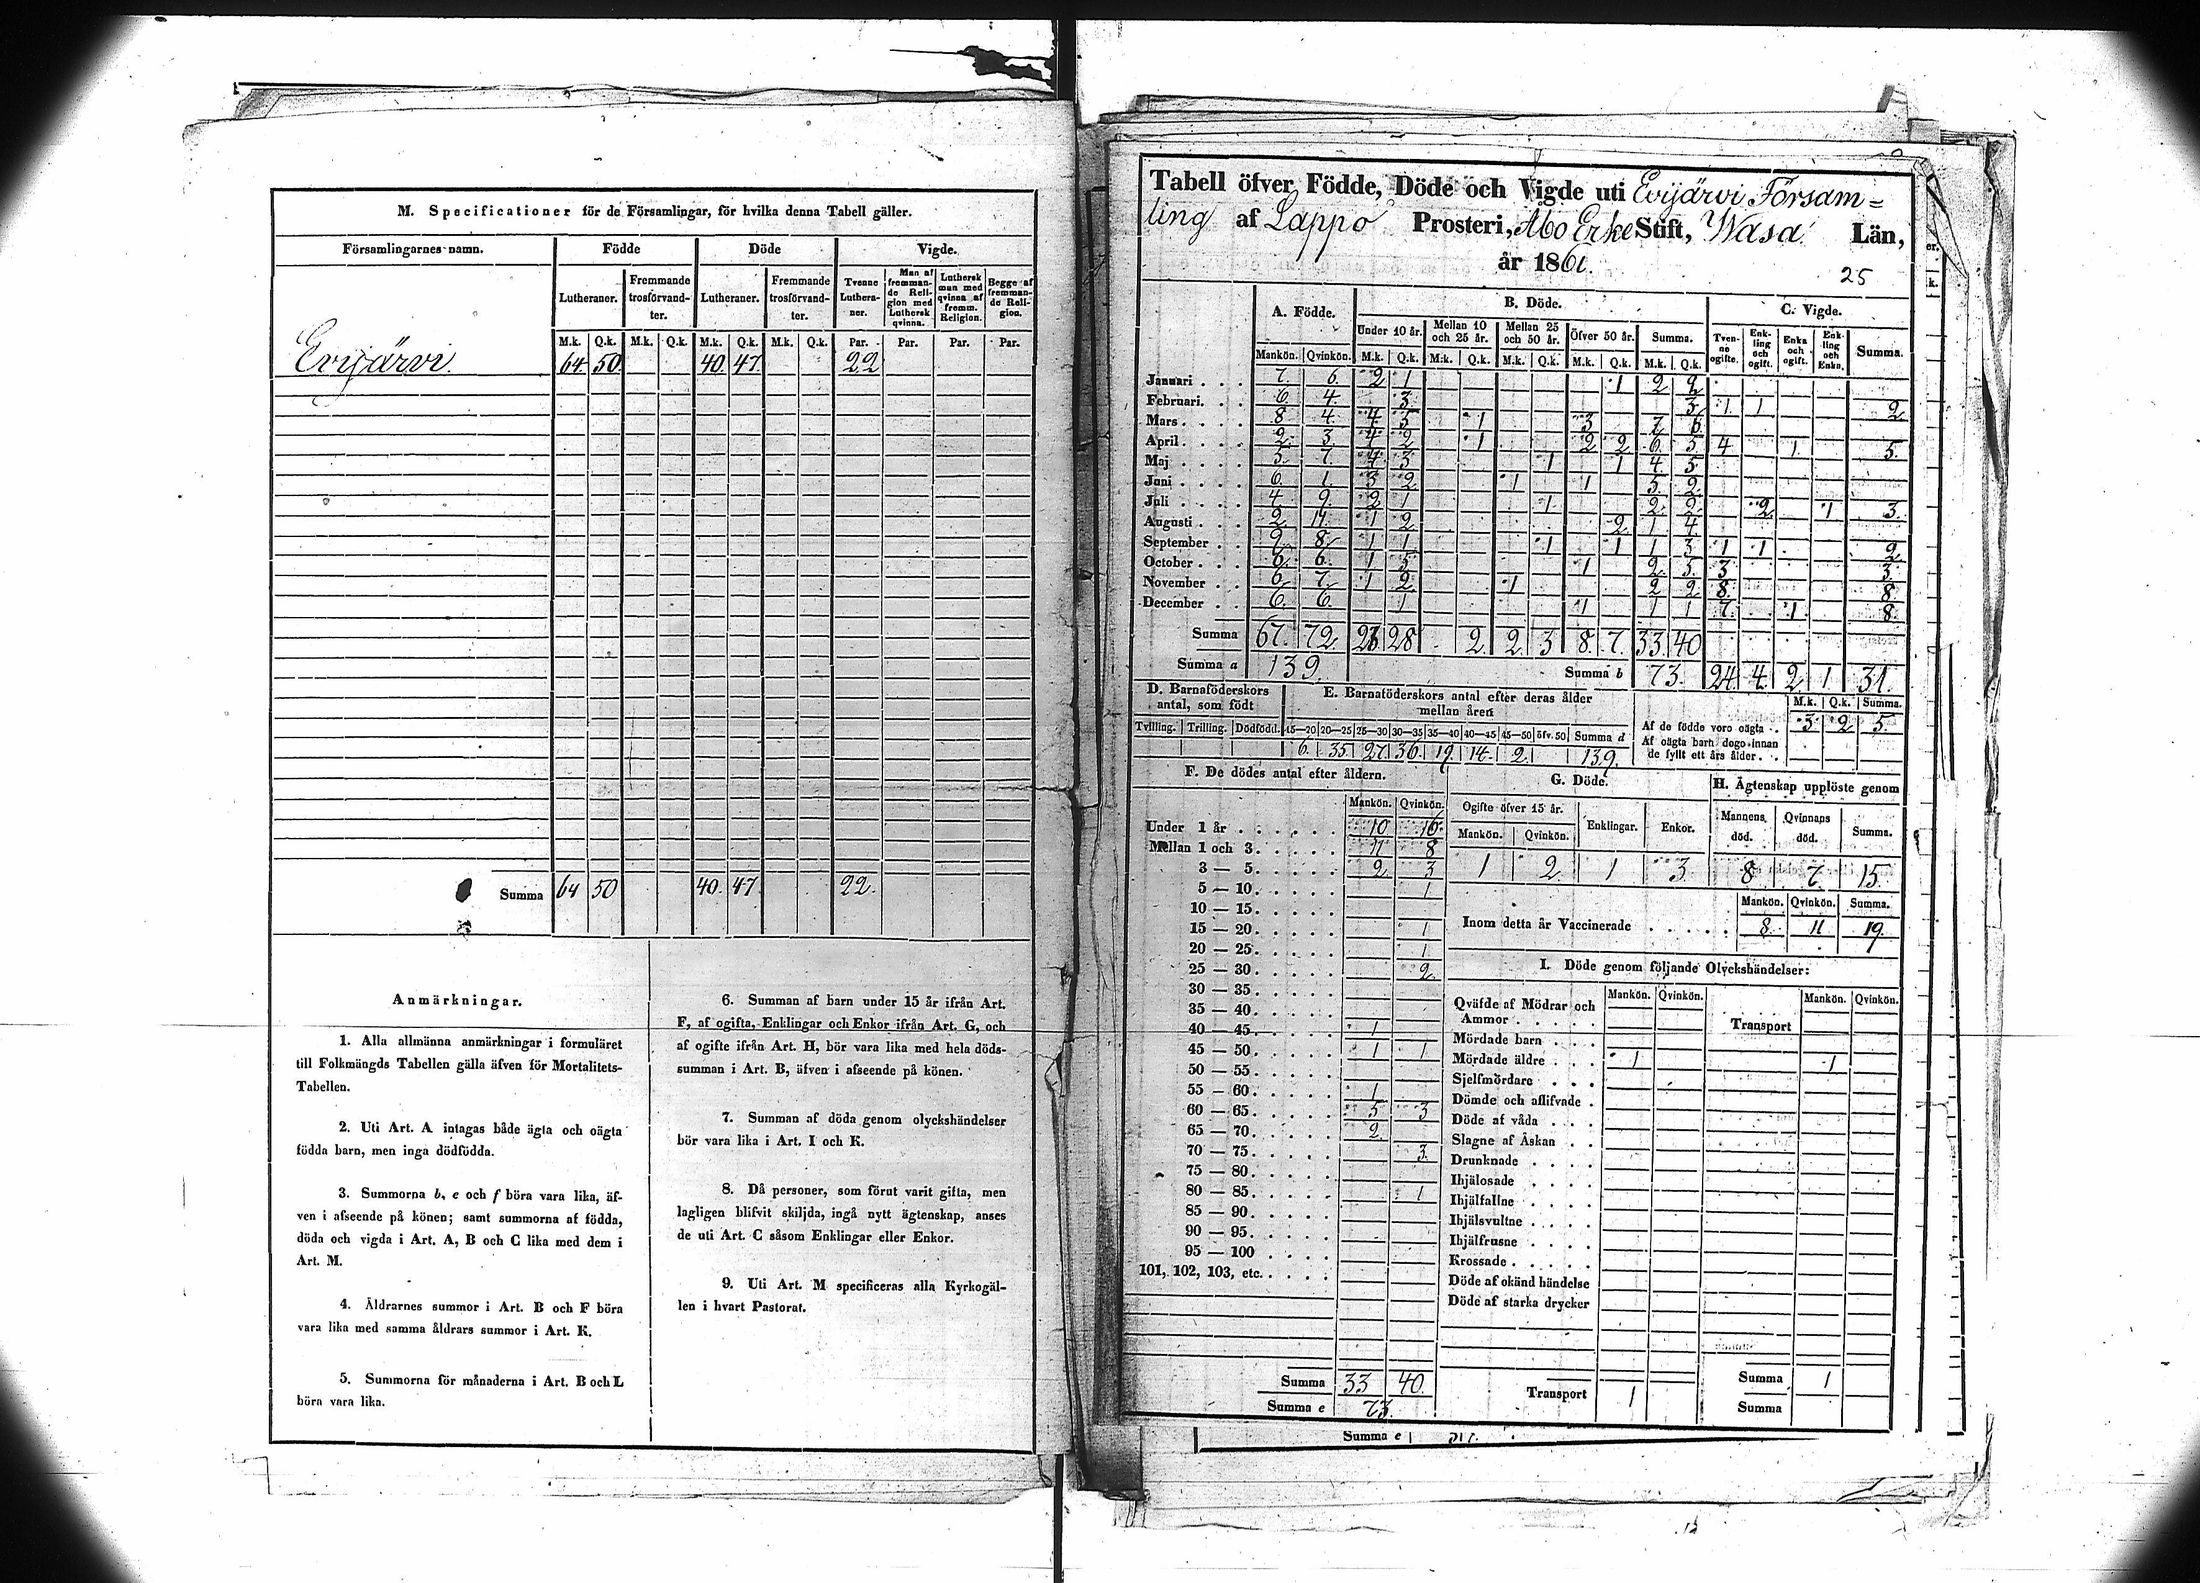 M. Specificationer för de Församlingar, för hvilka denna Tabell gäller.
Församlingarnes namn. Födde Döde Vigde.
Lutheraner. Fremmande trosförvandter. Lutheraner. Fremmande trosförvandter. Tvenne Lutheraner. Man af fremmande Religion med Luthersk qvinna. Luthersk man med qvinna af fremm. Religion. Begge af fremmande Religion.
M.k. Q.k. M.k. Q.k. M.k. Q.k. M.k. Q.k. Par. Par. Par. Par.
Evijärvi 64 50 40 47 22
Summa 64 50 40 47 22
Anmärkningar.
1. Alla allmänna anmärkningar i formuläret
till Folkmängds Tabellen gälla äfven för Mortalitets-
Tabellen.
2. Uti Art. A intagas både ägta och oägta
födda barn, men inga dödfödda.
3. Summorna b, e och f böra vara lika, äf-
ven i afseende på könen; samt summorna af födda,
döda och vigda i Art. A, B och C lika med dem i
Art. M.
4. Äldrarnes summor i Art. B och F böra
vara lika med samma åldrars summor i Art. K.
5. Summorna för månaderna i Art. B och L
böra vara lika.
6. Summan af barn under 15 år ifrån Art.
F, af ogifta, Enklingar och Enkor ifrån Art. G, och
af ogifte ifrån Art. H, bör vara lika med hela döds-
summan i Art. B, äfven i afseende på könen.
7. Summan af döda genom olyckshändelser
bör vara lika i Art. I och K.
8. Då personer, som förut varit gifta, men
lagligen blifvit skiljda, ingå nytt ägtenskap, anses
de uti Art. C såsom Enklingar eller Enkor.
9. Uti Art. M specificeras alla Kyrkogäl-
len i hvart Pastorat.
Tabell öfver Födde, Döde och Vigde uti Evijärvi Försam=
ling af Lappo Prosteri, Åbo Erke Stift, Wasa Län,
år 1861.
25
A. Födde. B. Döde. C. Vigde.
Under 10 år. Mellan 10 och 25 år. Mellan 25 och 50 år. Öfver 50 år. Summa. Tvenne ogifte. Enkling och ogift. Enka och ogift. Enkling och Enka. Summa.
Mankön. Qvinkön. M.k. Q.k. M.k. Q.k. M.k. Q.k. M.k. Q.k. M.k. Q.k.
Januari 7 6 2 1 1 2 2
Februari 6 4 3 3 1 1 2
Mars 8 4 4 5 1 3 7 6
April 2 3 4 2 1 2 2 6 5 4 1 5
Maj 5 7 4 3 1 1 4 5
Juni 6 1 3 2 1 1 5 2
Juli 4 9 2 1 1 2 2 2 1 3
Augusti 2 11 1 2 2 1 4
September 9 8 1 1 1 1 1 3 1 1 2
October 6 6 1 5 1 2 5 3 3
November 6 7 1 2 1 2 2 8 8
December 6 6 1 1 1 1 7 1 8
Summa 67 72 23 28 2 2 3 8 7 33 40
Summa a 139 Summa b 73 24 4 2 1 31
D. Barnaföderskors antal, som födt
E. Barnaföderskors antal efter deras ålder mellan åren
M.k. Q.k. Summa.
Tvilling. Trilling. Dödfödd. 15—20 20—25 25—30 30—35 35—40 40—45 45—50 öfv. 50 Summa d
6 35 27 36 19 14 2 139
Af de födde voro oägta 3 2 5
Af oägta barn dogo innan
de fyllt ett års ålder
F. De dödes antal efter åldern.
Mankön. Qvinkön.
Under 1 år 10 16
Mellan 1 och 3 11 8
3 — 5 2 3
5 — 10 1
10 — 15
15 — 20 1
20 — 25 1
25 — 30 2
30 — 35
35 — 40
40 — 45 1
45 — 50 1 1
50 — 55
55 — 60 1
60 — 65 5 3
65 — 70 2
70 — 75 3
75 — 80
80 — 85 1
85 — 90
90 — 95
95 — 100
101, 102, 103, etc.
Summa 33 40
Summa e 73
G. Döde.
Ogifte öfver 15 år. Enklingar. Enkor.
Mankön. Qvinkön.
1 2 1 3
H. Ägtenskap upplöste genom
Mannens död. Qvinnans död. Summa.
8 7 15
Mankön. Qvinkön. Summa.
Inom detta år Vaccinerade 8 11 19
I. Döde genom följande Olyckshändelser:
Mankön. Qvinkön. Mankön. Qvinkön.
Qväfde af Mödrar och
Ammor
Transport
Mördade barn
Mördade äldre 1 1
Sjelfmördare
Dömde och aflifvade
Döde af våda
Slagne af Åskan
Drunknade
Ihjälosade
Ihjälfallne
Ihjälsvultne
Ihjälfrusne
Krossade
Döde af okänd händelse
Döde af starka drycker
Transport 1
Summa 1
Summa
Summa e